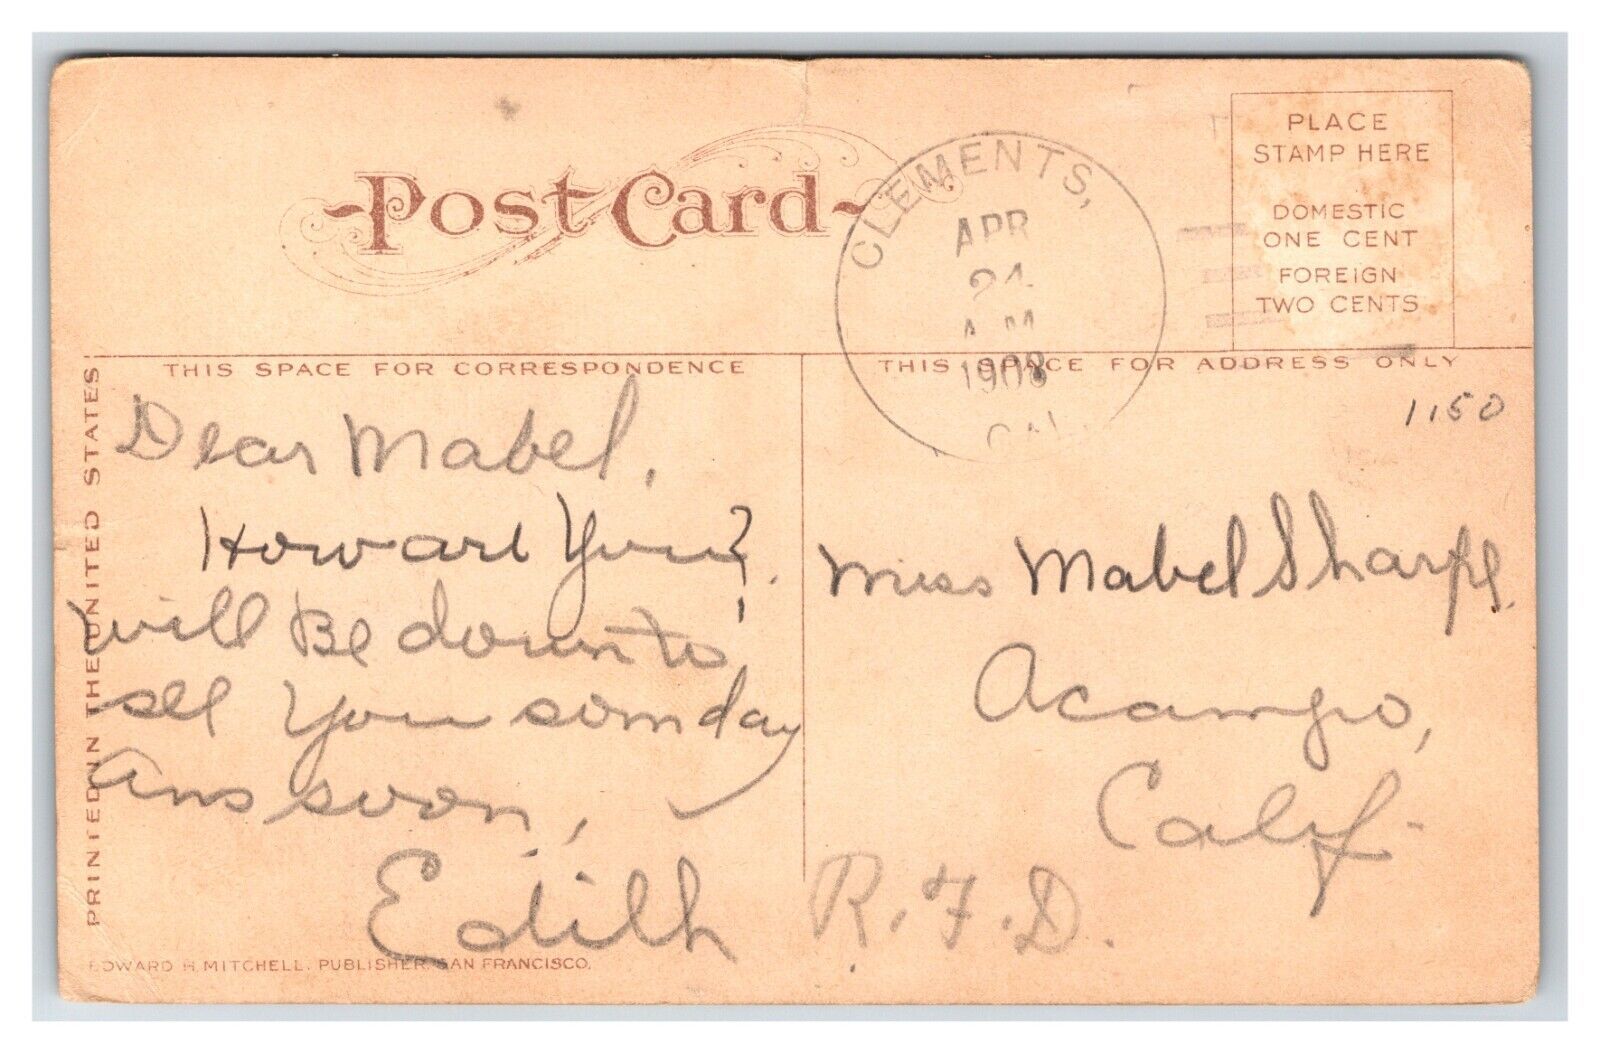 Post Card
CLEMENTS,
APR
24
A.M.
1908
CAL.
PLACE
STAMP HERE
DOMESTIC
ONE CENT
FOREIGN
TWO CENTS
THIS SPACE FOR CORRESPONDENCE
THIS SPACE FOR ADDRESS ONLY
PRINTED IN THE UNITED STATES.
1150
Dear Mabel,
How are You?
will Be down to
see You somday
Ans soon,
Edith
Miss Mabel Sharpe.
Acampo,
Calif.
R.F.D.
EDWARD H. MITCHELL, PUBLISHER, SAN FRANCISCO.